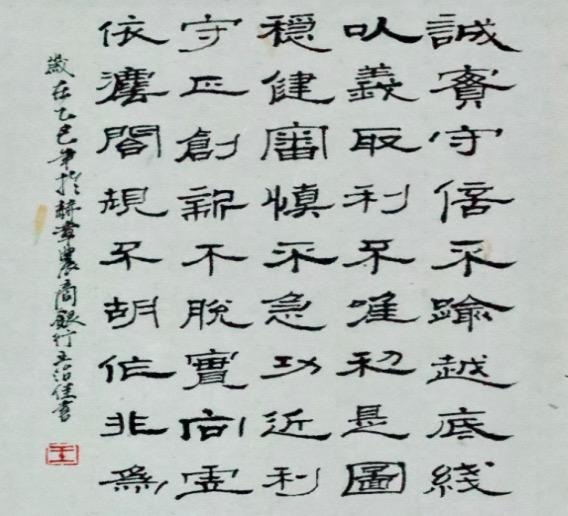 誠實守信不踰越底綫
以義取利不唯利是圖
穩健審慎不急功近利
守正創新不脫實向虛
依灋閤規不胡作非為
歲在乙巳年於農商銀行王治佳書
王